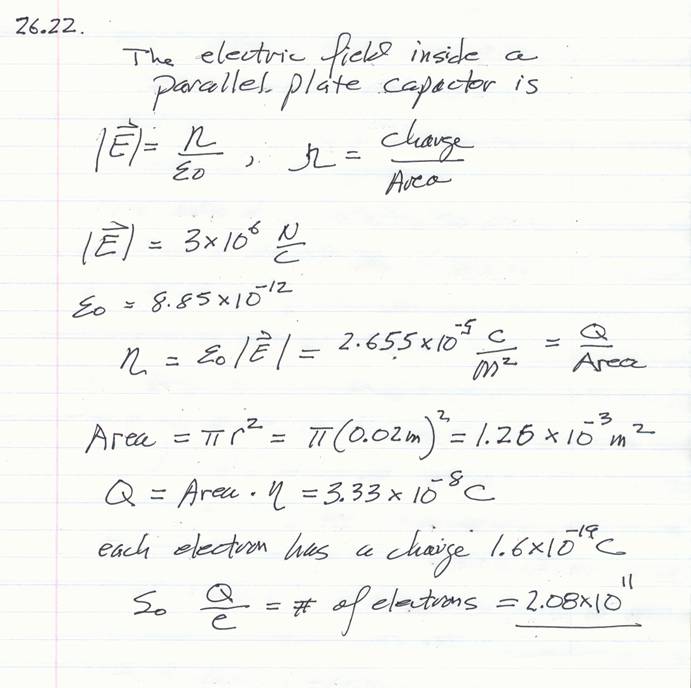 26.22.
The electric field inside a
parallel plate capactor is
|E⃗| = η/ε0 , η = charge/Area
|E⃗| = 3×10^6 N/C
ε0 = 8.85×10^-12
η = ε0|E⃗| = 2.655×10^-5 C/m² = Q/Area
Area = πr² = π(0.02m)² = 1.26×10^-3 m²
Q = Area · η = 3.33×10^-8 C
each electron has a charge 1.6×10^-19 C
So Q/e = # of electrons = 2.08×10^11